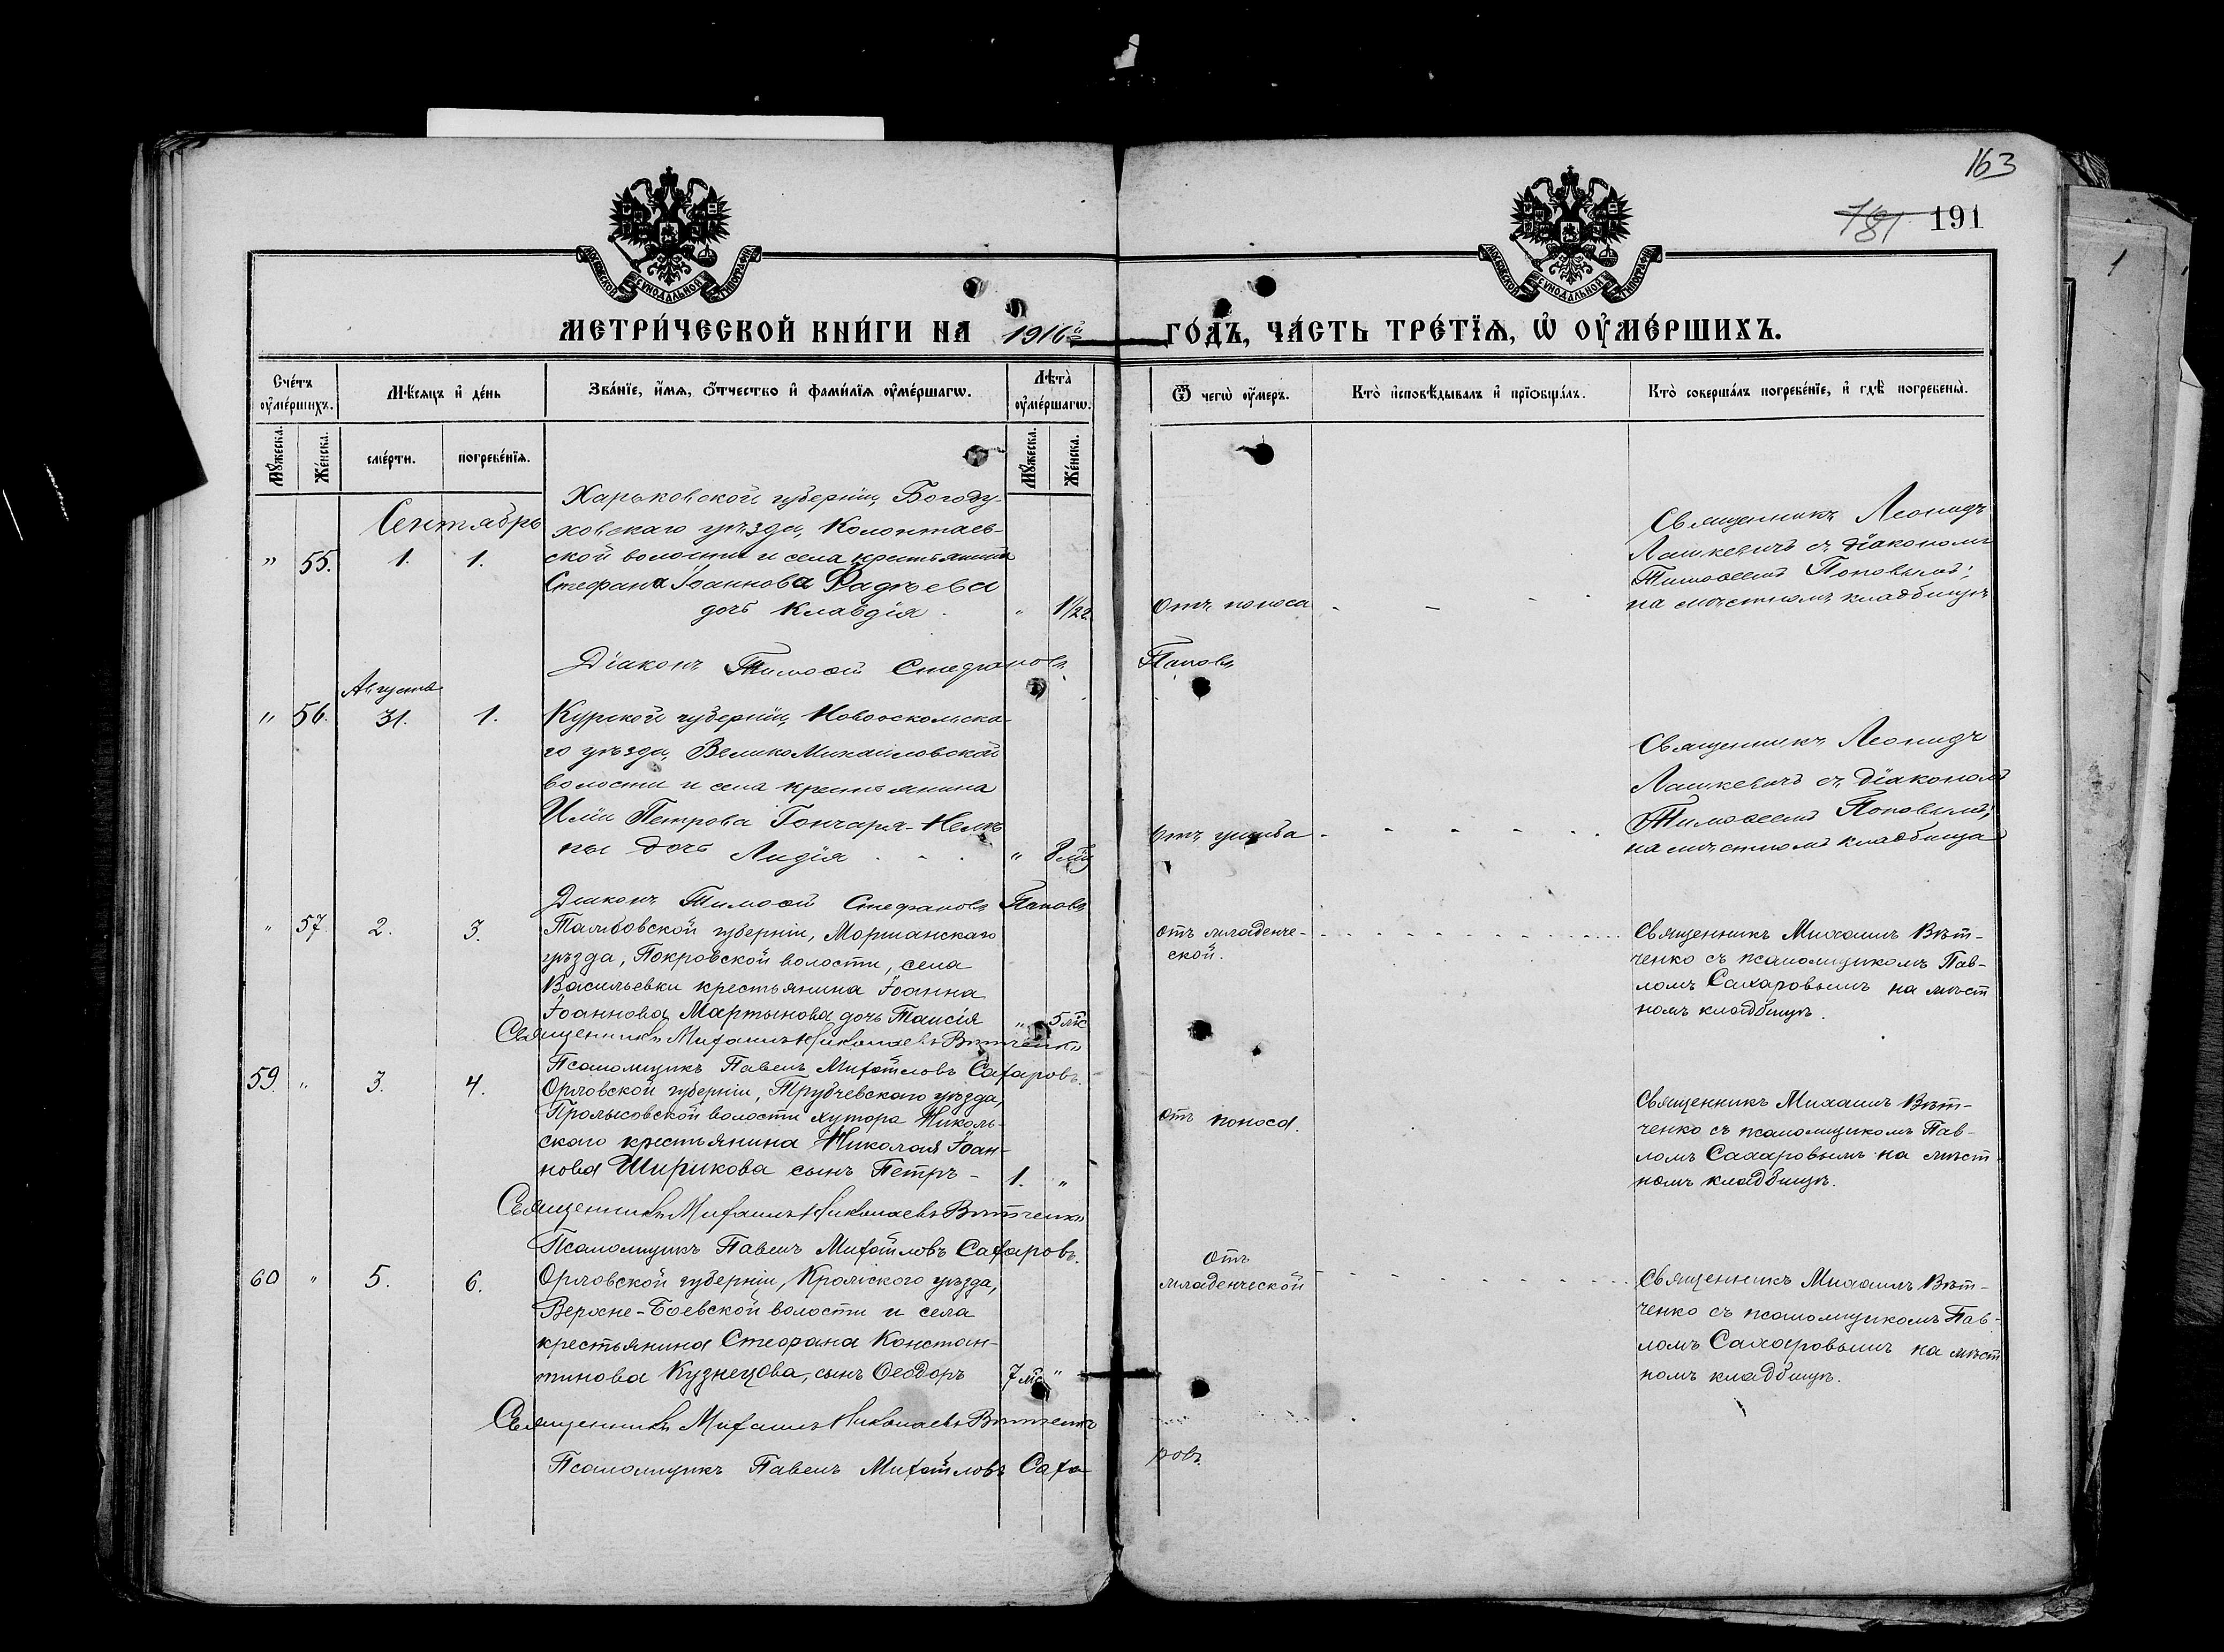 163
781 191
1
МОСКОВСКОЙ СУНОДАЛЬНОЙ ТИПОГРАФІИ
МОСКОВСКОЙ СУНОДАЛЬНОЙ ТИПОГРАФІИ
МЕТРИ́ЧЕСКОЙ КНИ́ГИ НА 1916й ГО́ДЪ, ЧА́СТЬ ТРЕ́ТЇѦ, Ѡ ОУ҆МЕ́РШИХЪ.
Сче́тъ оу҆ме́ршихъ.
Мѣ́сѧцъ и҆ де́нь
Зва́нїе, и҆́мѧ, ѻ҆́тчество и҆ фами́лїѧ оу҆ме́ршагѡ.
Лѣта̀ оу҆ме́ршагѡ.
Ѿ чегѡ̀ оу҆́меръ.
Кто̀ и҆сповѣ́дывалъ и҆ прїѻбща́лъ.
Кто̀ соверша́лъ погребе́нїе, и҆ гдѣ̀ погребены̀.
Мꙋ́жеска.
Же́нска.
сме́рти.
погребе́нїѧ.
Мꙋ́жеска.
Же́нска.
Сентябрь
Харьковской губерніи, Богоду-
ховскаго уѣзда, Колонтаев-
ской волости и села крестьянина
Стефана Іоаннова Фадѣева
дочь Клавдія
" 55. 1. 1. " 1 1/2 г.
Отъ поноса
Священникъ Леонидъ
Лашкевичъ съ діакономъ
Тимоѳеемъ Поповымъ;
на мѣстномъ кладбищѣ
Діаконъ Тимоѳей Стефановъ Поповъ
Августа
" 56. 31. 1.
Курской губерніи, Новооскольска-
го уѣзда, ВеликоМихайловской
волости и села крестьянина
Иліи Петрова Гончаря-
ны дочь Лидія
" 8 мц
Отъ ушиба
Священникъ Леонидъ
Лашкевичъ съ діакономъ
Тимоѳеемъ Поповымъ;
на мѣстномъ кладбища
Діаконъ Тимоѳей Стефановъ Поповъ
" 57. 2. 3.
Тамбовской губерніи, Моршанскаго
уѣзда, Покровской волости, села
Васильевки крестьянина Іоанна
Іоаннова Мартынова дочь Таисія
" 5 мс
отъ младенче-
ской.
Священникъ Михаилъ Вѣт-
ченко съ псаломщикомъ Пав-
ломъ Сахаровымъ на мѣст
номъ кладбищѣ.
Священникъ Михаилъ Николаевъ Вѣтченко
Псаломщикъ Павелъ Михайловъ Сахаровъ.
59. " 3. 4.
Орловской губерніи, Трубчевскаго уѣзда,
Пролысовской волости хутора Николь-
скаго крестьянина Николая Іоан-
нова Ширикова сынъ Петръ -
1. "
отъ поноса.
Священникъ Михаилъ Вѣт-
ченко съ псаломщикомъ Пав-
ломъ Сахаровымъ на мѣст
номъ кладбищѣ.
Священникъ Михаилъ Николаевъ Вѣтченко
Псаломщикъ Павелъ Михайловъ Сахаровъ.
60 " 5. 6.
Орловской губерніи, Кромскаго уѣзда,
Верхне-Боевской волости и села
крестьянина Стефана Констан-
тинова Кузнецова, сынъ Ѳеодоръ
7 мс "
отъ
младенческой
Священникъ Михаилъ Вѣт-
ченко съ псаломщикомъ Пав-
ломъ Сахаровымъ на мѣст
номъ кладбищѣ.
Священникъ Михаилъ Николаевъ Вѣтченко
Псаломщикъ Павелъ Михайловъ Саха-
ровъ